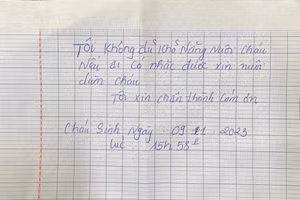 Tôi không đủ khả năng nuôi cháu
Nếu ai có nhác được xin nuôi
dùm cháu
Tôi xin chân thành cám ơn
Cháu sinh ngày 09 11 2023
lúc 15h 55